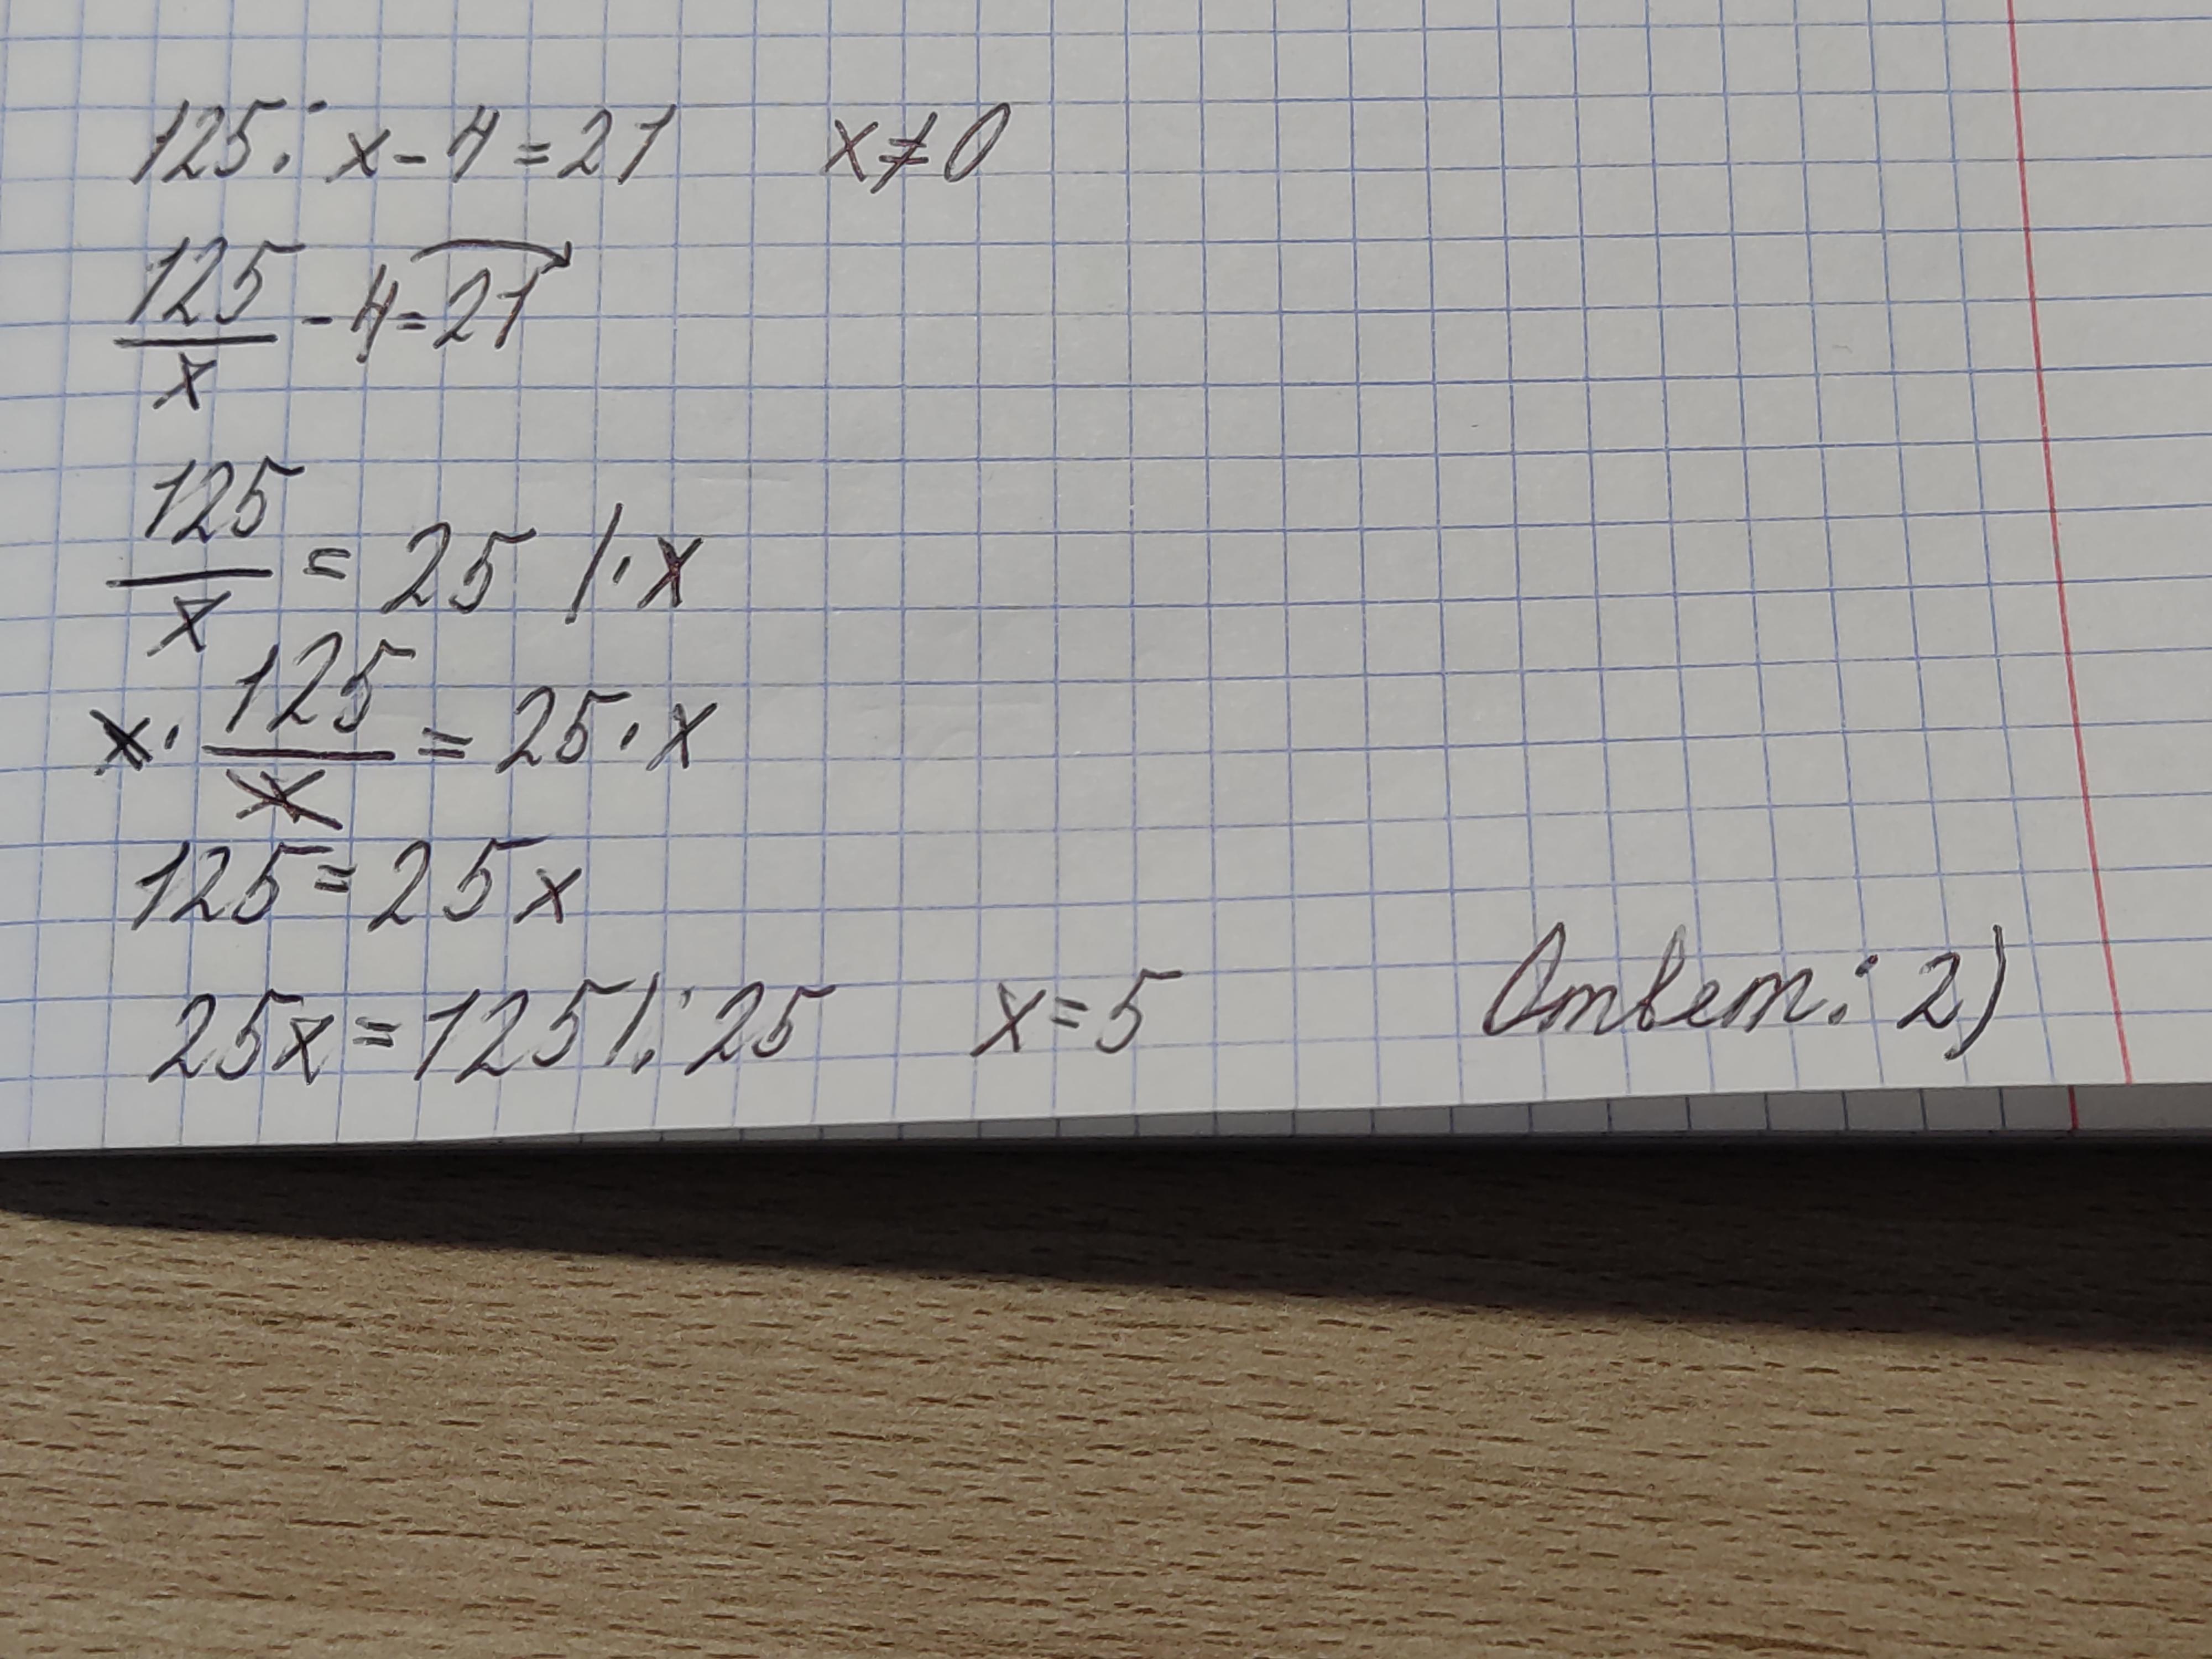 125 : x - 4 = 21 x ≠ 0
125/x - 4 = 21
125/x = 25 /· x
x · 125/x = 25 · x
125 = 25x
25x = 125 /: 25 x = 5 Ответ: 2)